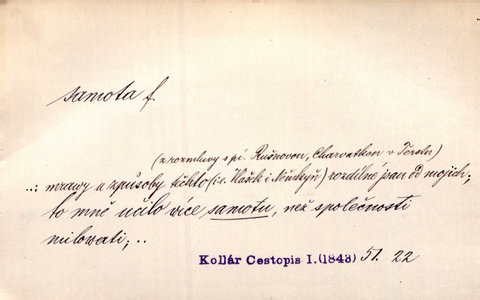 samota f.
(z rozmluvy s pí. Rušnovou, Charvatkou v Terstu)
..: mravy a způsoby těchto (i.e. Vlašek i Němkyň) rozdílné jsau od mojich;
to mně učilo více samotu, než společnosti
milowati; ..
Kollár Cestopis I.(1843) 51. 22